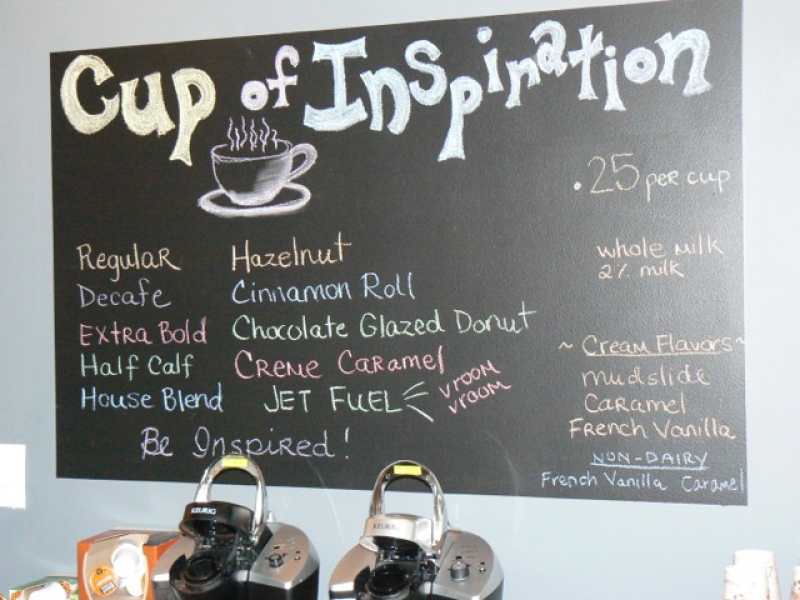 Cup of Inspiration
.25 per cup
Regular
Decafe
Extra Bold
Half Calf
House Blend
Hazelnut
Cinnamon Roll
Chocolate Glazed Donut
Creme Caramel
Jet Fuel
vroom
vroom
Be Inspired!
whole milk
2% milk
~ Cream Flavors ~
mudslide
Caramel
French Vanilla
NON-DAIRY
French Vanilla Caramel
KEURIG
KEURIG